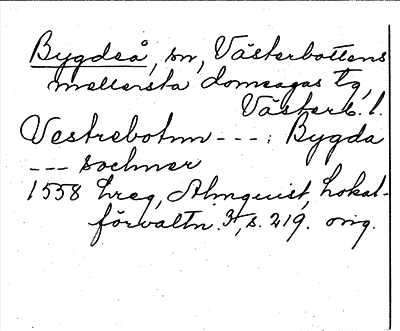 Bygdeå, sn, Västerbottens
mellersta domsagas tg,
Västerb. l.
Vestrebotnn ---: Bygda
--- sochner
1558 Lreg, Almquist, Lokal-
förvaltn. 3, s. 219. orig.